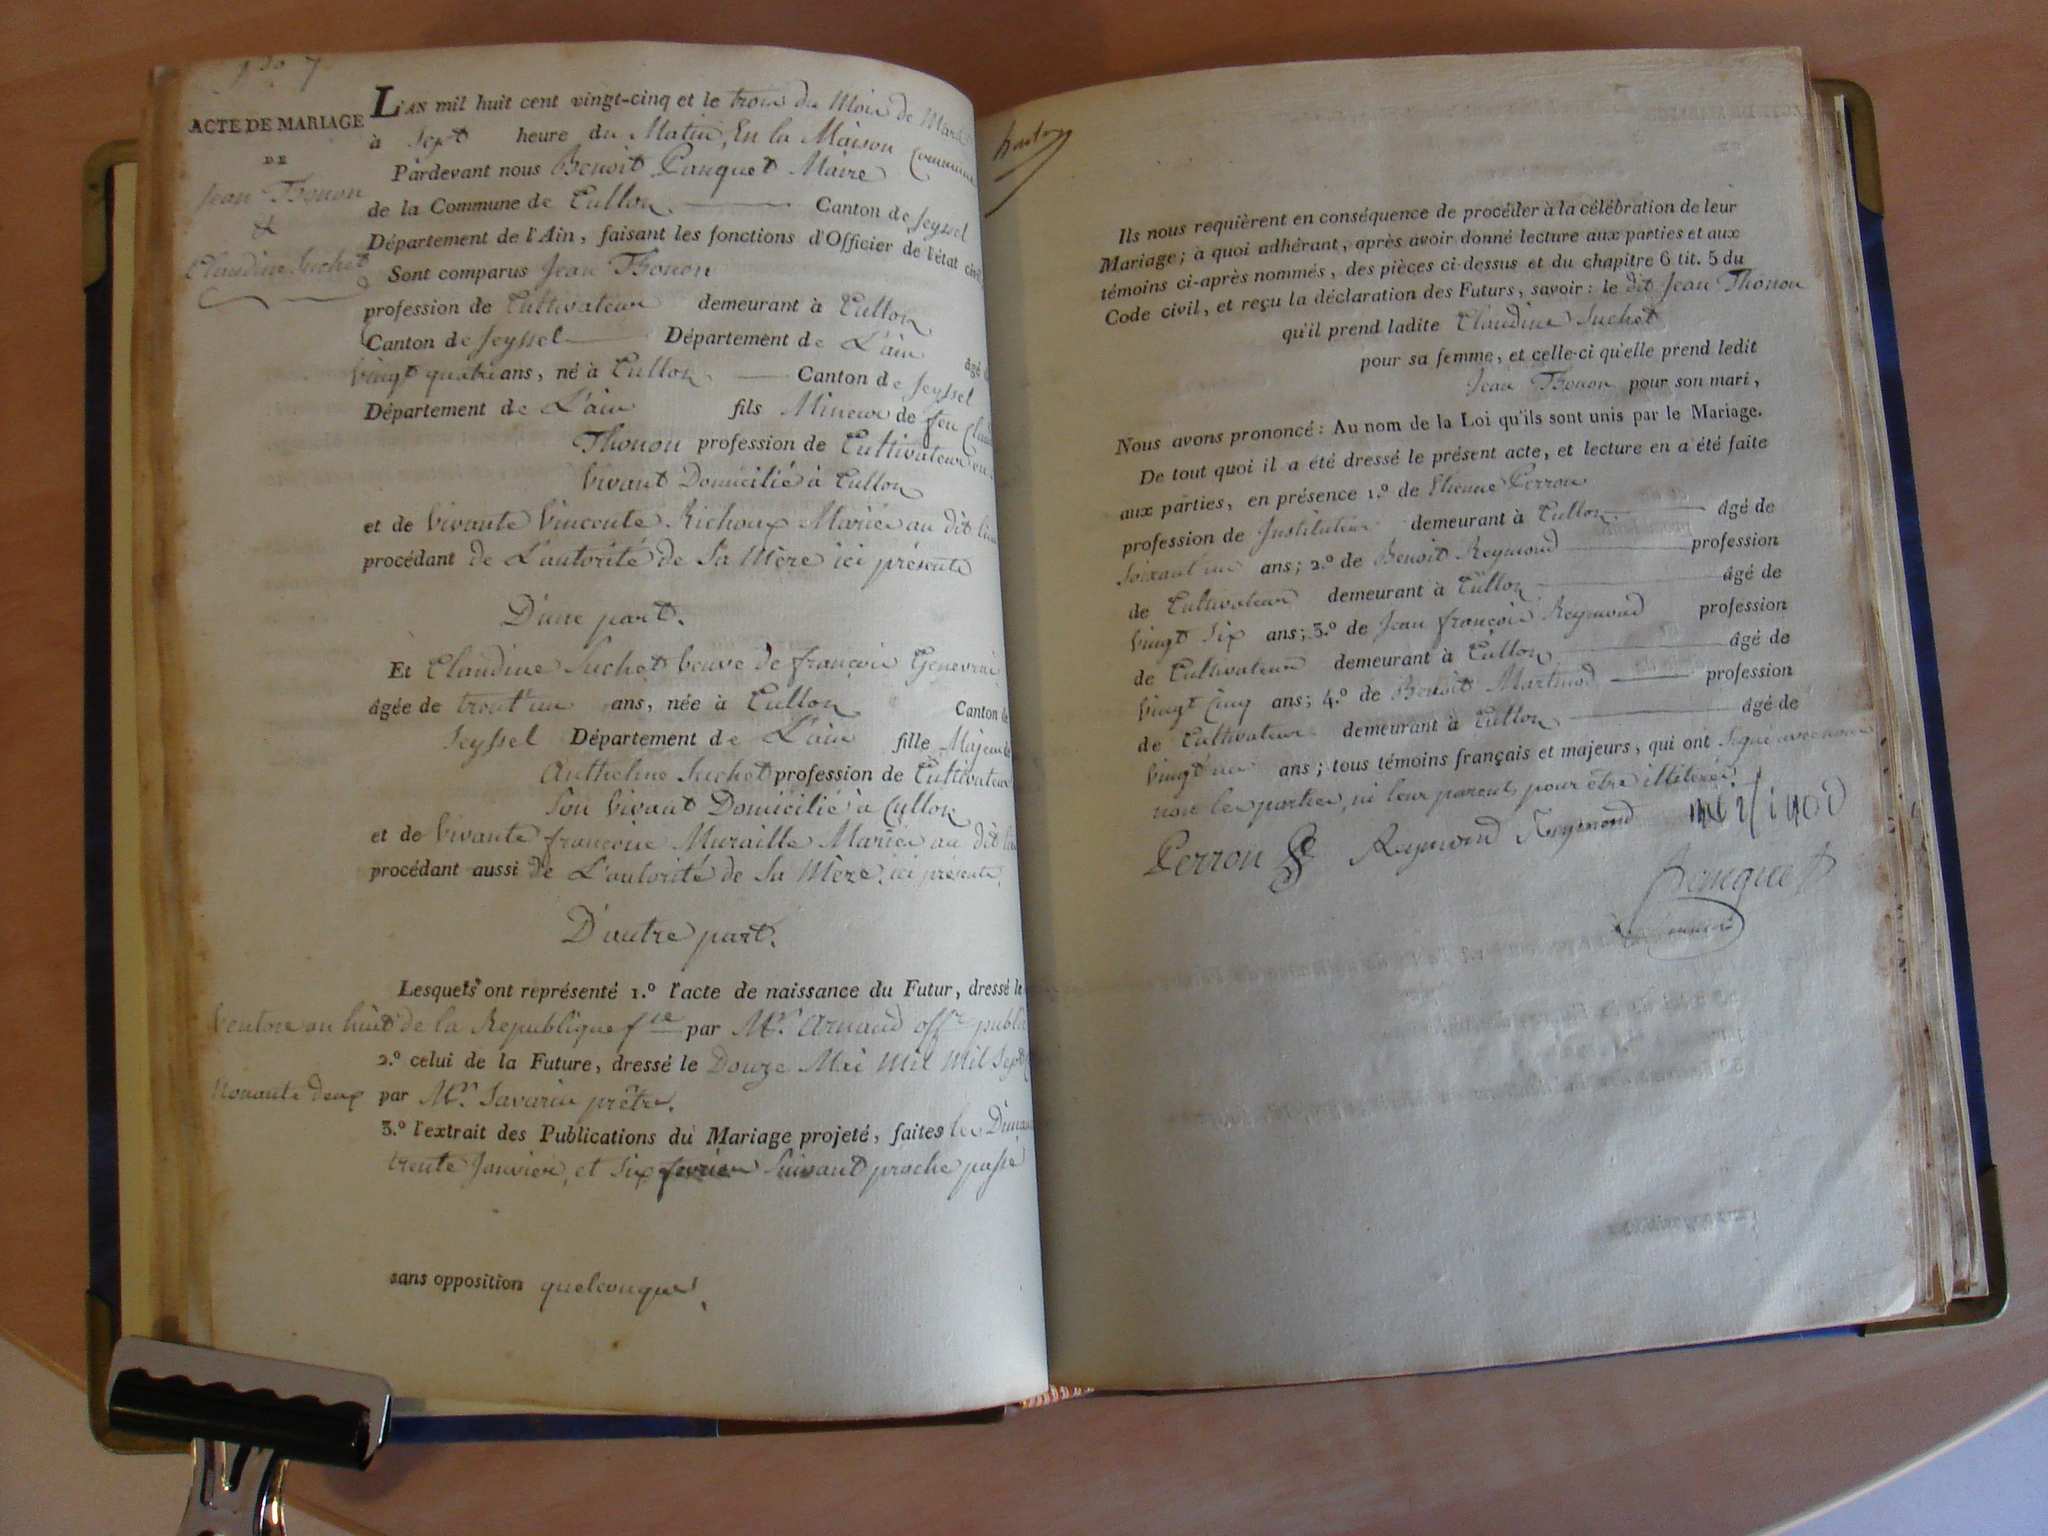 N.º 7
ACTE DE MARIAGE
DE
Jean Thonon
&
Claudine Suchet
L'AN mil huit cent vingt-cinq et le trois du Mois de Mars
à Sept heure du Matin, En la Maison Commune
Pardevant nous Benoit Panquet Maire
de la Commune de Culloz Canton de Seyssel
Département de l'Ain, faisant les fonctions d'Officier de l'état civil
Sont comparus Jean Thonon
profession de Cultivateur demeurant à Culloz
Canton de Seyssel Département de L'ain âgé d
Vingt quatre ans, né à Culloz Canton de Seyssel
Département de L'ain fils Mineur de feu Claude
Thonon profession de Cultivateur
Vivant Domicilié à Culloz
et de Vivante Vincente Richoux Mariés au dit lieu
procédant de L'autorité de Sa Mère ici présente
D'une part.
Et Claudine Suchet Veuve de françois
âgée de trent'un ans, née à Culloz Canton de
Seyssel Département de L'ain fille Majeure de
Anthelme Suchet profession de Cultivateur
Son Vivant Domicilié à Culloz
et de Vivante françoise Muraille Mariés au dit lieu
procédant aussi de L'autorité de Sa Mère, ici présente,
D'autre part.
Lesquels ont représenté 1.º l'acte de naissance du Futur, dressé le
Ventose an huit de la Republique f.se par M.r Arnaud off.r public
2.º celui de la Future, dressé le Douze Mai Mil Mil Sept
Nonante deux par M.r Savarin prêtre.
3.º l'extrait des Publications du Mariage projeté, faites les Diman
trente Janvier, et Six fevrier Suivant proche passé
sans opposition quelconque.
Ils nous requièrent en conséquence de procéder à la célébration de leur
Mariage; à quoi adhérant, après avoir donné lecture aux parties et aux
témoins ci-après nommés, des pièces ci-dessus et du chapitre 6 tit. 5 du
Code civil, et reçu la déclaration des Futurs, savoir: le dit Jean Thonon
qu'il prend ladite Claudine Suchet
pour sa femme, et celle-ci qu'elle prend ledit
Jean Thonon pour son mari,
Nous avons prononcé: Au nom de la Loi qu'ils sont unis par le Mariage.
De tout quoi il a été dressé le présent acte, et lecture en a été faite
aux parties, en présence 1.º de Etienne Perron
profession de Instituteur demeurant à Culloz âgé de
Soixant'un ans; 2.º de Benoit Reymond profession
de Cultivateur demeurant à Culloz âgé de
Vingt Six ans; 3.º de Jean françois Reymond profession
de Cultivateur demeurant à Culloz âgé de
Vingt Cinq ans; 4.º de Benoit Martinod profession
de Cultivateur demeurant à Culloz âgé de
Vingt'un ans; tous témoins français et majeurs, qui ont Signé avec nous
non les parties, ni leur parents pour être illiterés.
Perron Raymond Reymond
Panquet